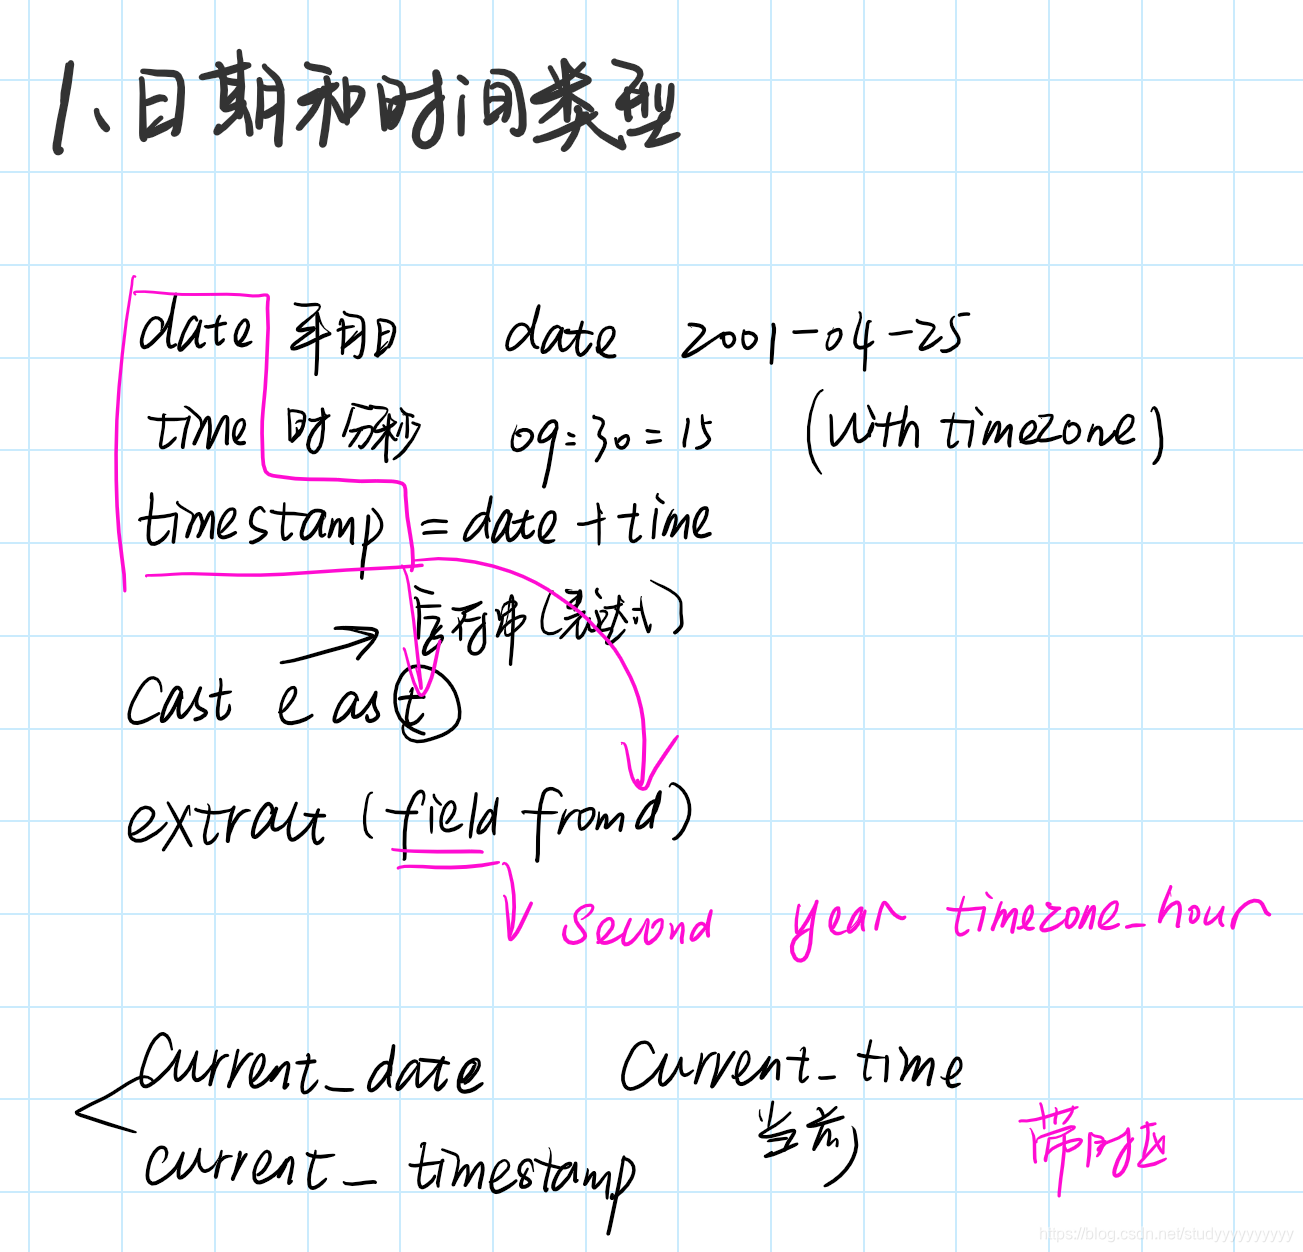 1、日期和时间类型
date 年月日 date 2001-04-25
time 时分秒 09:30:15 (with timezone)
timestamp = date + time
字符串(表达式)
Cast e as t
extract (field from d)
second year timezone_hour
Current_date Current_time
当前 带时区
current_timestamp
https://blog.csdn.net/studyyyyyyyyyy